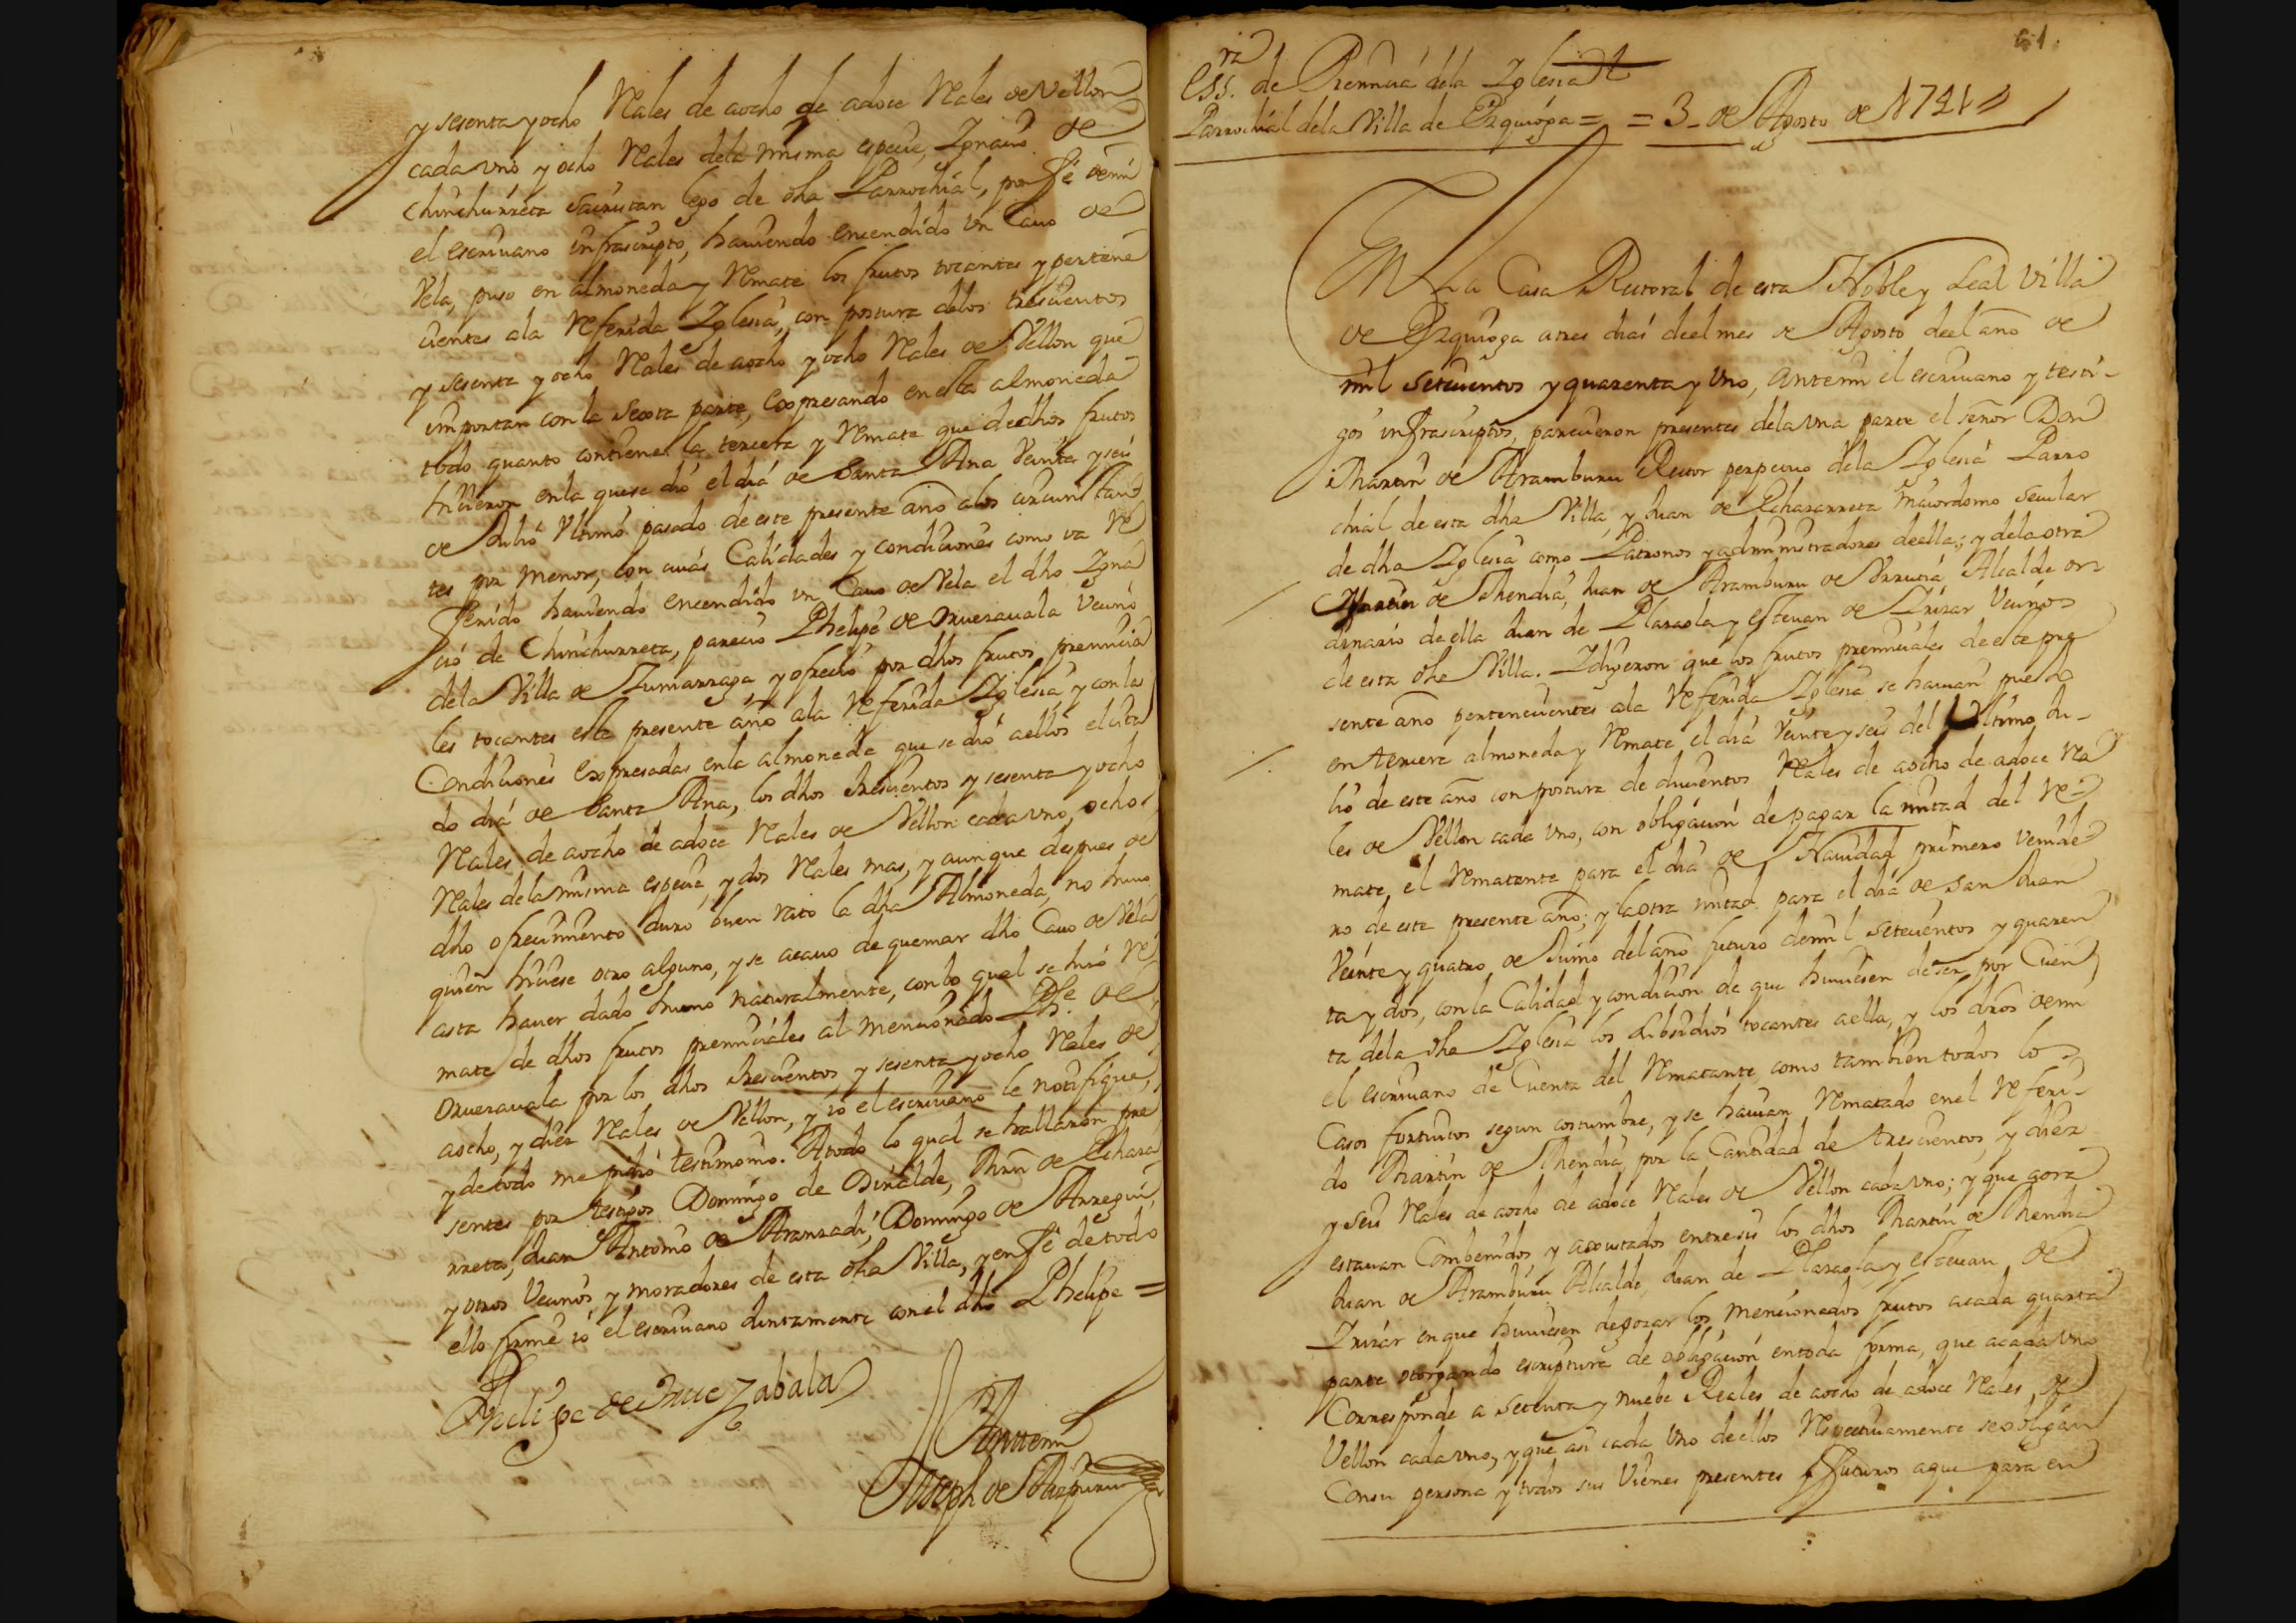 y sesenta y ocho Rales de aocho de adoce Rales de Vellon
cada vno y ocho Rales dela misma especie, Ygnacio de
Chinchurreta sacristan lego de dha Parrochial, por fe de mi
el escriuano infrascripto, hauiendo encendido vn Cauo de
Vela, puso en almoneda y Remate los frutos tocantes y pertene
cientes ala Referida Yglesia, con postura delos trescientos
y sesenta y ocho Rales de aocho y ocho Rales de Vellon que
importan con la Sexta parte, expresando en esta almoneda
todo quanto contiene la tercera y Remate que de dhos frutos
hicieron en la que se dió el dia de Santa Ana Veinte y seis
de Julio Vltimo pasado de este presente año alos circunstan
tes por menor, con cuias Calidades y condiciones como va Re
ferido hauiendo encendido vn Cauo de Vela el dho Ygna
cio de Chinchurreta, parecio Phelipe de Oruezauala Vecino
dela Villa de Zumarraga y ofreció por dhos frutos premicia
les tocantes este presente año ala Referida Yglesia, y con las
Condiciones expresadas en la almoneda que se dió aellos el cita
do dia de Santa Ana, los dhos trescientos y sesenta y ocho
Rales de aocho de adoce Rales de Vellon cada vno, ocho
Rales dela misma especie, y dos Rales mas, y aunque despues de
dho ofrecimiento duro buen rato la dha Almoneda, no huuo
quien hiciese otro alguno, y se acauo de quemar dho Cauo de Vela
asta hauer dado humo naturalmente, con lo qual se hizo Re
mate de dhos frutos premiciales al mencionado Phe. de
Oruezauala por los dhos trescientos y sesenta y ocho Rales de
aocho, y diez Rales de Vellon, y io el escriuano le notifique,
y de todo me pidió testimonio. Atodo lo qual se hallaron pre
sentes por testigos Domingo de Oiralde, Thrin de Echaza
rreta, Juan Antonio de Aranzadi, Domingo de Arregui,
y otros Vecinos y moradores de esta dha Villa, y en fe de todo
ello firme io el escriuano Juntamente con el dho Phelipe =
Phelipe de Oruezabala
Antemi
Joseph de Aizpuru
61.
Essra. de Premicia dela Yglesia
Parrochial dela Villa de Ezquioga = = 3_ de Agosto de 1741
En La Casa Rectoral de esta Noble y Leal Villa
de Ezquioga atres dias del mes de Agosto del año de
mil setecientos y quarenta y Vno, antemi el escriuano y testi-
gos infrascriptos, parecieron presentes dela vna parte el señor Don
Martin de Aramburu Rector perpetuo dela Yglesia Parro
chial de esta dha Villa, y Juan de Echazarreta maiordomo secular
de dha Yglesia como Patronos y administradores de ella; y dela otra
Martin de Mendia, Juan de Aramburu de Vrrutia Alcalde or-
dinario de ella Juan de Plazaola y Esteuan de Yrizar Vecinos
de esta dha Villa. Y dijeron que los frutos premiciales de este pre
sente año pertenecientes ala Referida Yglesia se hauian puesto
en tercera almoneda y Remate el dia Veinte y seis del Vltimo Ju-
lio de este año con postura de ducientos Rales de aocho de adoce Ra
les de Vellon cada vno, con obligacion de pagar la mitad del Re-
mate, el Rematante para el dia de Nauidad primero venide
ro de este presente año; y la otra mitad para el dia de San Juan
Veinte y quatro de Junio del año futuro de mil setecientos y quaren
ta y dos, con la Calidad y condicion de que huuiesen de ser por Cuen
ta dela dha Yglesia los subsidios tocantes aella, y los dros de mi
el escriuano de Cuenta del Rematante como tambien todos los
Casos fortuitos segun costumbre, y se hauian Rematado en el Referi-
do Martin de Mendia por la Cantidad de trescientos y diez
y seis Rales de aocho de adoce Rales de Vellon cada vno; y que aora
estauan Combenidos y axustados entre si los dhos Martin de Mendia
Juan de Aramburu Alcalde, Juan de Plazaola y esteuan de
Yrizar en que huuiesen de gozar los mencionados frutos acada quarta
parte otorgando escriptura de obligacion en toda forma, que acada vno
Corresponde a setenta y nuebe Reales de aocho de adoce Rales de
Vellon cada vno, y que asi cada vno de ellos Respectiuamente se obligan
Con su persona y todos sus Vienes presentes y futuros aque para en